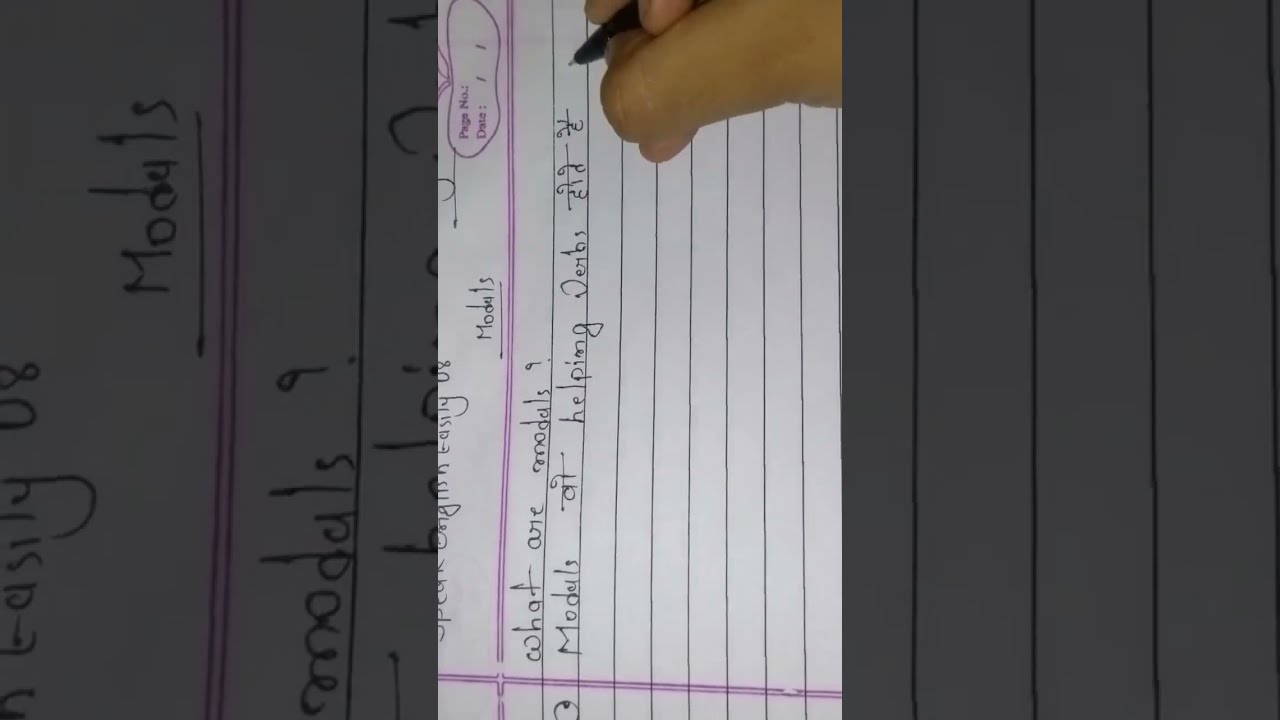 Page No.:
Date: / /
Speak English Easily 08
Modals
What are modals?
Modals वो helping Verbs होते है